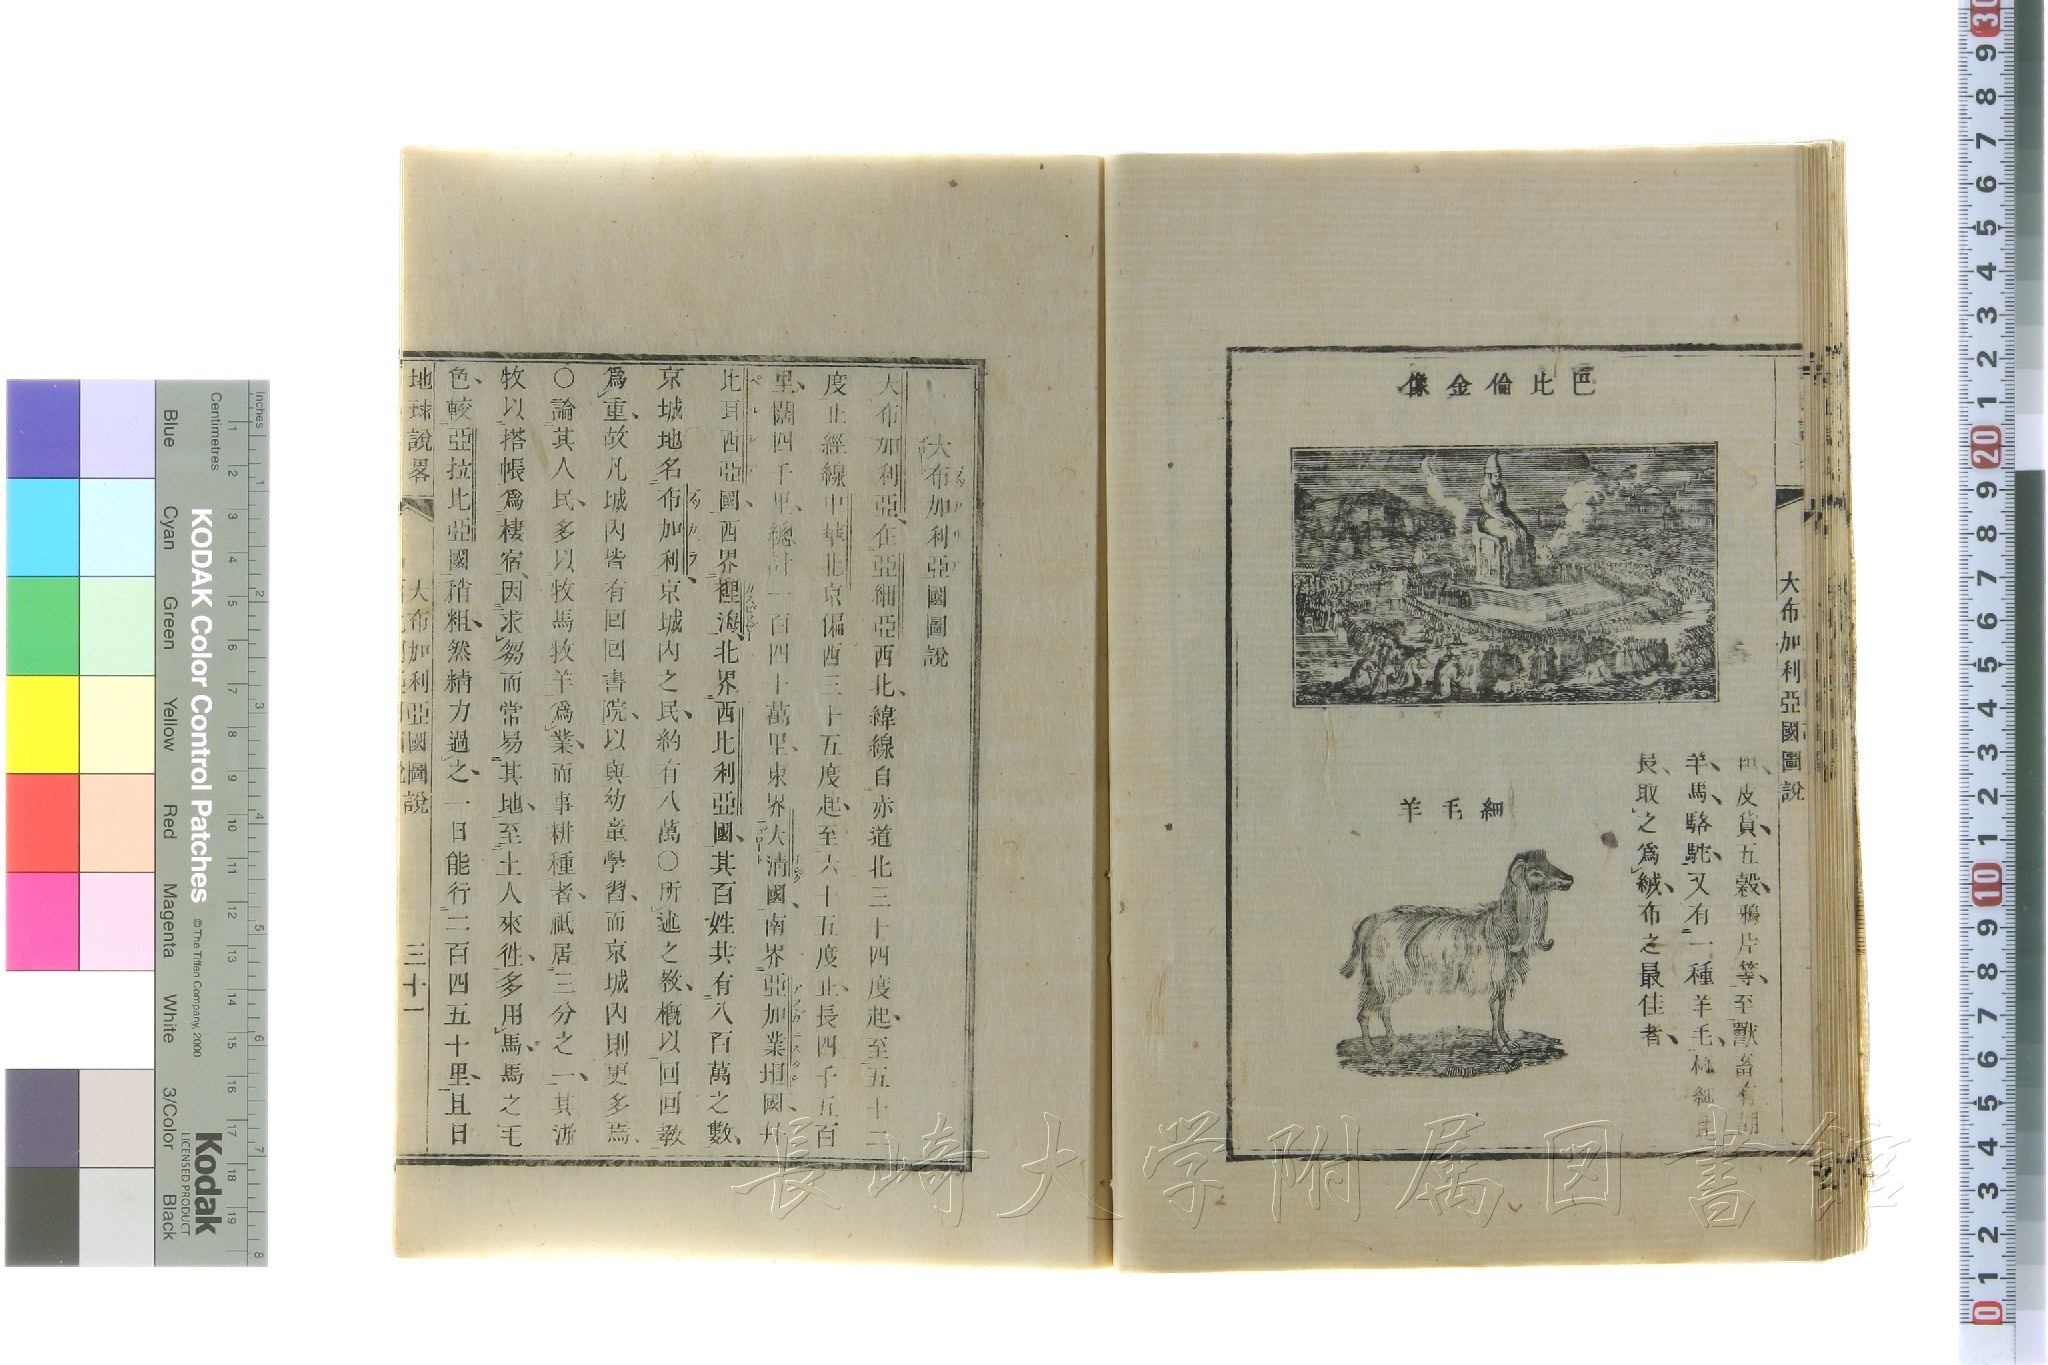 大布加利亞國圖說
巴比倫金像
皮貨、五穀、鴉片等、至獸畜有
羊、馬、駱駝、又有一種羊毛、極細且
長、取之爲絨布之最佳者、
細毛羊
大布加利亞國圖說
ブカリヤ
大布加利亞、在亞細亞西北、緯線自赤道北三十四度起、至五十二
度止經線中華北京偏西三十五度起、至六十五度止、長四千五百
里、闊四千里、總計一百四十萬里、東界大清國、南界亞加業坦國、幷
比耳西亞國、西界裡海、北界西比利亞國、其百姓共有八百萬之數、
京城地名布加利、京城內之民、約有八萬〇所述之教、概以回回教
爲重、故凡城內皆有回回書院、以與幼童學習、而京城內則更多焉、
〇論其人民、多以牧馬牧羊爲業、而事耕種者、祇居三分之一、其游
牧以搭帳爲棲宿、因求芻而常易其地、至土人來徃、多用馬、馬之毛
色、較亞拉比亞國稍粗、然精力過之、一日能行二百四五十里、且日
地球說畧
大布加利亞國圖說
三十一
長崎大学附属図書館
KODAK Color Control Patches
© The Tiffen Company, 2000
Kodak
LICENSED PRODUCT
Inches
Centimetres
Blue
Cyan
Green
Yellow
Red
Magenta
White
3/Color
Black